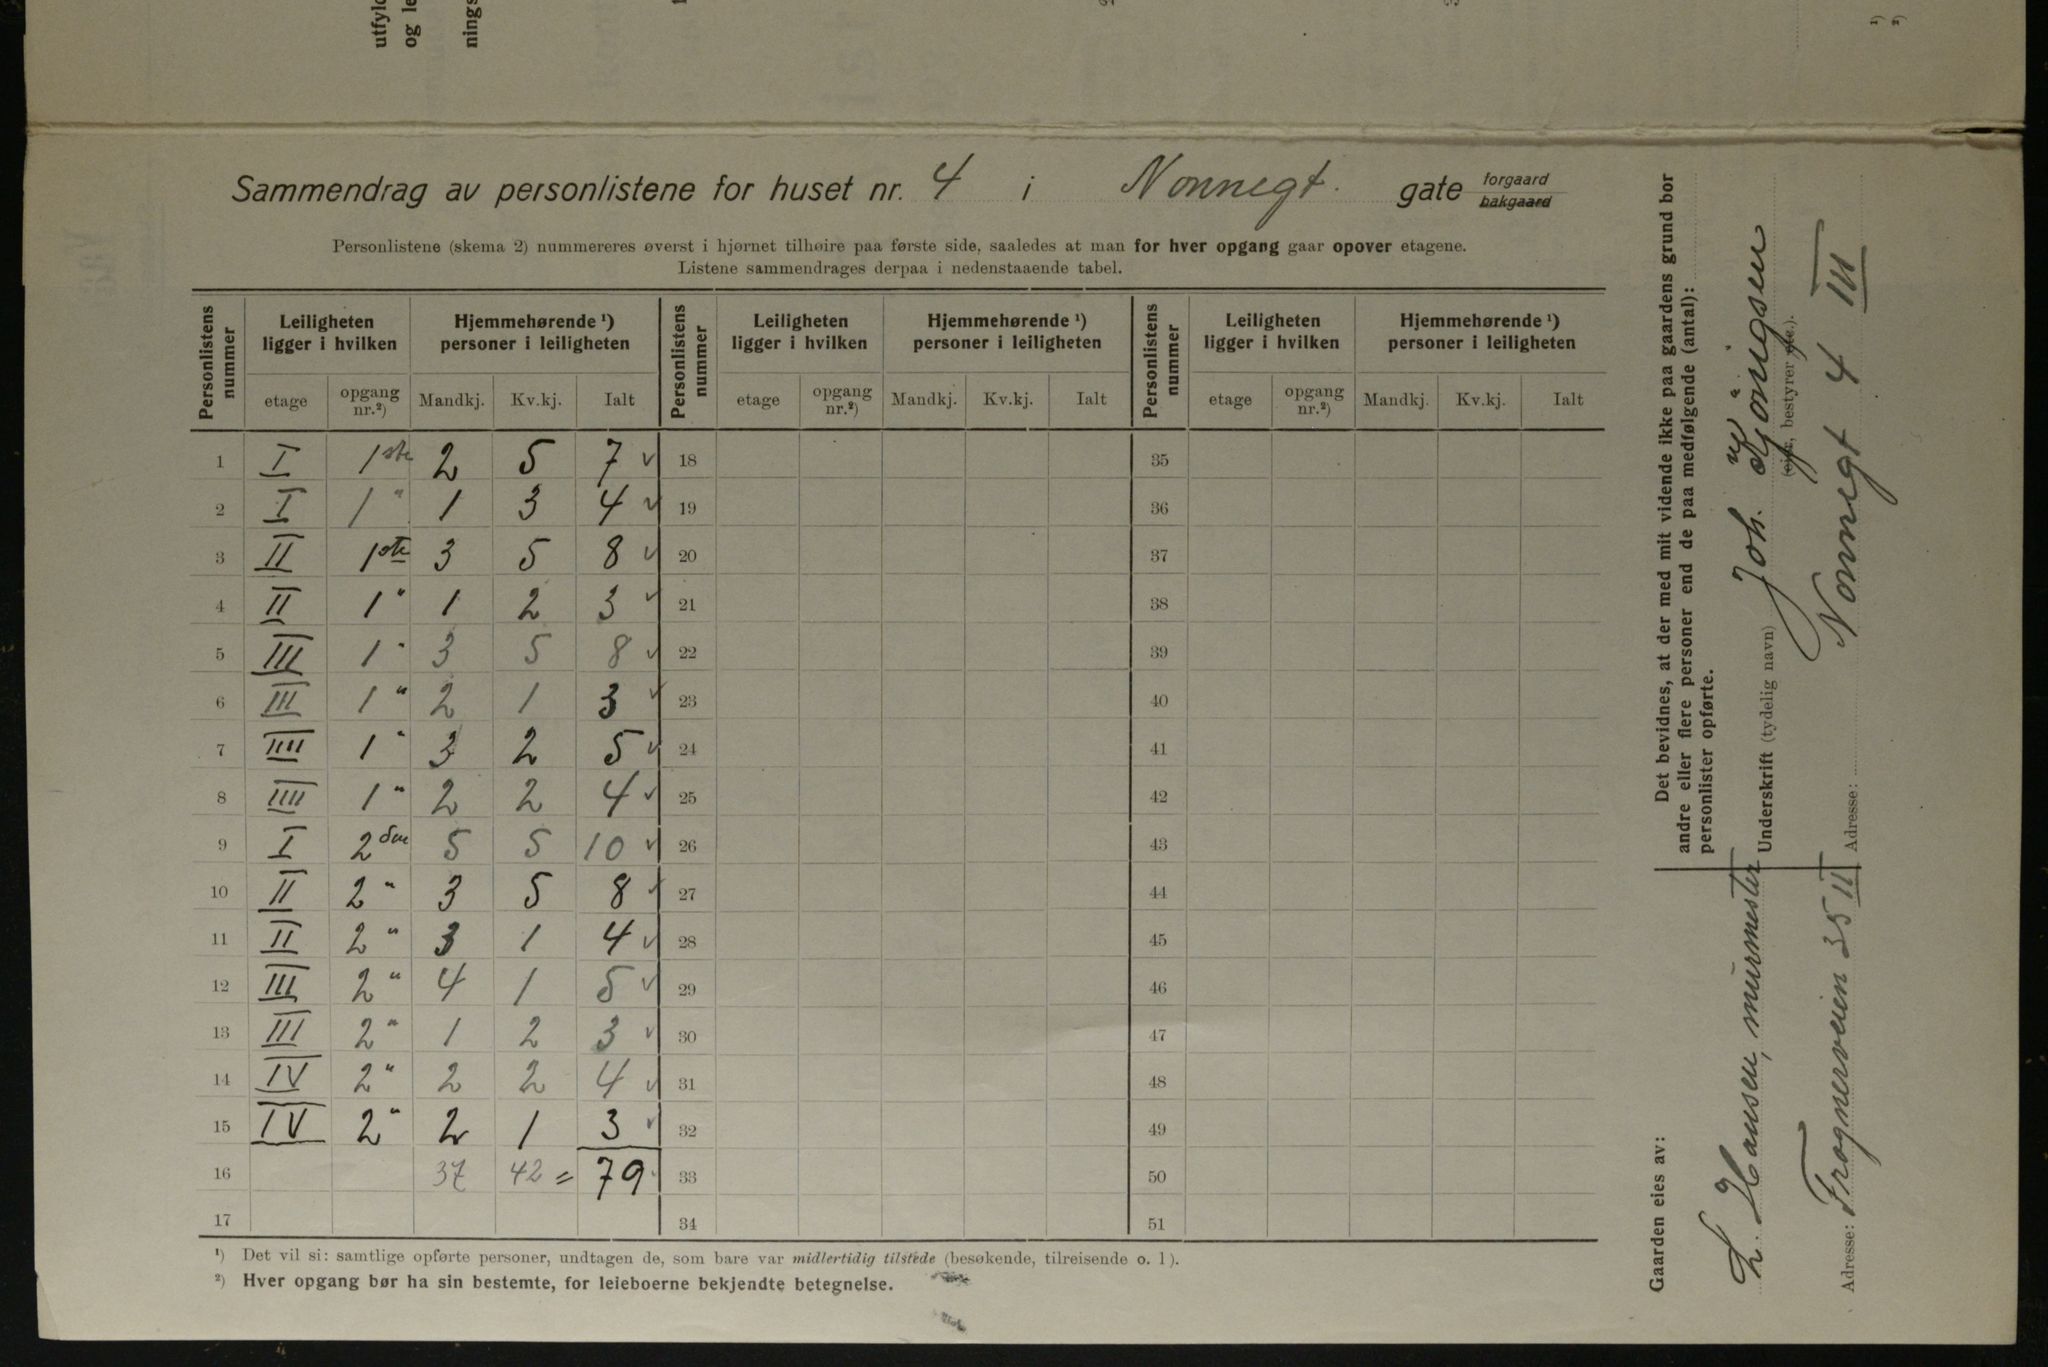 utfyld
og le
nings
Sammendrag av personlistene for huset nr. 4 i Nonnegt. gate forgaard bakgaard
Personlistene (skema 2) nummereres øverst i hjørnet tilhøire paa første side, saaledes at man for hver opgang gaar opover etagene.
Listene sammendrages derpaa i nedenstaaende tabel.
Personlistens nummer | Leiligheten ligger i hvilken | Hjemmehørende ¹) personer i leiligheten | Personlistens nummer | Leiligheten ligger i hvilken | Hjemmehørende ¹) personer i leiligheten | Personlistens nummer | Leiligheten ligger i hvilken | Hjemmehørende ¹) personer i leiligheten
etage | opgang nr.²) | Mandkj. | Kv.kj. | Ialt | etage | opgang nr.²) | Mandkj. | Kv.kj. | Ialt | etage | opgang nr.²) | Mandkj. | Kv.kj. | Ialt
1 I 1ste 2 5 7 ✓ 18 35
2 I 1 " 1 3 4 ✓ 19 36
3 II 1ste 3 5 8 ✓ 20 37
4 II 1 " 1 2 3 ✓ 21 38
5 III 1 " 3 5 8 ✓ 22 39
6 III 1 " 2 1 3 ✓ 23 40
7 IIII 1 " 3 2 5 ✓ 24 41
8 IIII 1 " 2 2 4 ✓ 25 42
9 I 2den 5 5 10 ✓ 26 43
10 II 2 " 3 5 8 ✓ 27 44
11 II 2 " 3 1 4 ✓ 28 45
12 III 2 " 4 1 5 ✓ 29 46
13 III 2 " 1 2 3 ✓ 30 47
14 IV 2 " 2 2 4 ✓ 31 48
15 IV 2 " 2 1 3 ✓ 32 49
16 37 42 = 79 33 50
17 34 51
¹) Det vil si: samtlige opførte personer, undtagen de, som bare var midlertidig tilstede (besøkende, tilreisende o. l ).
²) Hver opgang bør ha sin bestemte, for leieboerne bekjendte betegnelse.
Det bevidnes, at der med mit vidende ikke paa gaardens grund bor
andre eller flere personer end de paa medfølgende (antal):
personlister opførte.
Underskrift (tydelig navn) Joh.
(eier, bestyrer etc.).
Adresse: Nonnegt 4 III
Gaarden eies av:
L. Hansen, murmester
Adresse: Frognerveien 35 II
¹)
²)